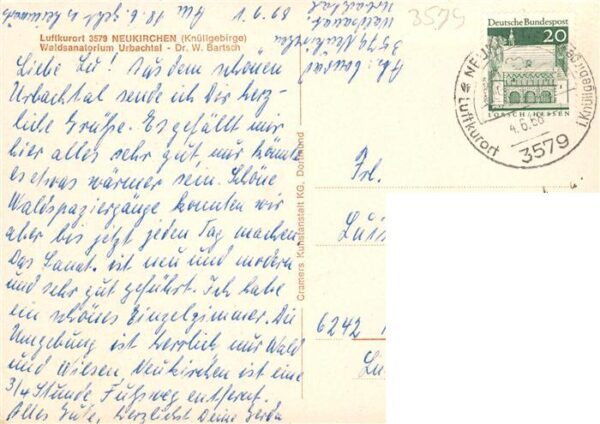 1.6.68
Luftkurort 3579 NEUKIRCHEN (Knüllgebirge)
Waldsanatorium Urbachtal - Dr. W. Bartsch
Liebe Lu! Aus dem schönen
Urbachtal sende ich Dir herz-
liche Grüße. Es gefällt mir
hier alles sehr gut nur könnte
es etwas wärmer sein. Schöne
Waldspaziergänge konnten wir
aber bis jetzt jeden Tag machen
Das Sanat. ist neu und modern
und sehr gut geführt. Ich habe
ein schönes Einzelzimmer. Die
Umgebung ist herrlich nur Wald
und Wiesen. Neukirchen ist eine
3/4 Stunde Fußweg entfernt.
Alles Gute, herzlichst Deine Gerda
Waldsanat.
Urbachtal
3579 Neukirchen
Cramers Kunstanstalt KG, Dortmund
3579
Deutsche Bundespost
20
LORSCH/HESSEN
Luftkurort
4.6.68
3579
i. Knüllgebirge
Frl.
6242